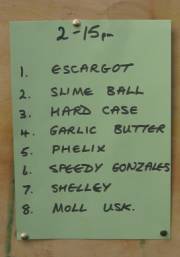 2-15pm
1. ESCARGOT
2. SLIME BALL
3. HARD CASE
4. GARLIC BUTTER
5. PHELIX
6. SPEEDY GONZALES
7. SHELLEY
8. MOLL USK.